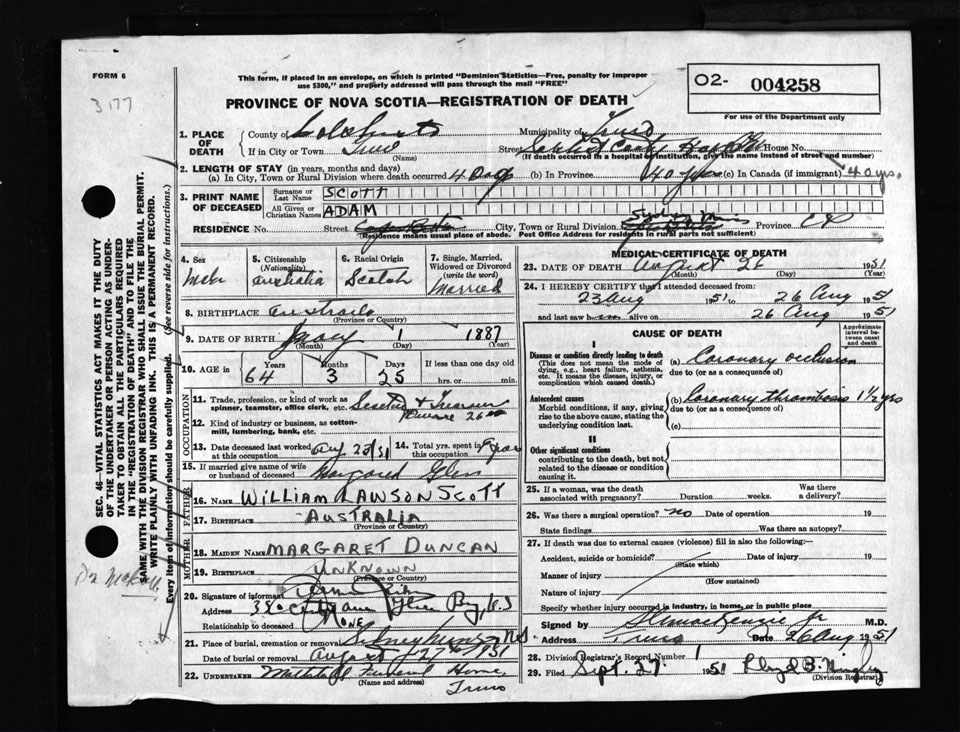 FORM 6
3177
This form, if placed in an envelope, on which is printed "Dominion Statistics—Free, penalty for improper
use $300," and properly addressed will pass through the mail "FREE"
O2- 004258
For use of the Department only
PROVINCE OF NOVA SCOTIA—REGISTRATION OF DEATH
1. PLACE OF DEATH
County of Municipality of Truro
If in City or Town Truro Street House No.
(Name) (If death occurred in a hospital or institution, give the name instead of street and number)
2. LENGTH OF STAY (in years, months and days)
(a) In City, Town or Rural Division where death occurred 4 days (b) In Province 40 yrs (c) In Canada (if immigrant) 40 yrs.
3. PRINT NAME OF DECEASED
Surname or Last Name SCOTT
All Given or Christian Names ADAM
RESIDENCE No. Street City, Town or Rural Division Sydney Mines Province
(Residence means usual place of abode. Post Office Address for residents in rural parts not sufficient)
4. Sex Male
5. Citizenship (Nationality) Australia
6. Racial Origin Scotch
7. Single, Married, Widowed or Divorced (write the word) Married
8. BIRTHPLACE Australia
(Province or Country)
9. DATE OF BIRTH May 1 1887
(Month) (Day) (Year)
10. AGE in 64 Years 3 Months 25 Days If less than one day hrs. or min.
OCCUPATION
11. Trade, profession, or kind of work as spinner, teamster, office clerk, etc.
12. Kind of industry or business, as cotton-mill, lumbering, bank, etc.
13. Date deceased last worked at this occupation
14. Total yrs. spent in this occupation
15. If married give name of wife or husband of deceased Margaret Glen
FATHER
16. NAME WILLIAM LAWSON SCOTT
17. BIRTHPLACE AUSTRALIA
(Province or Country)
MOTHER
18. MAIDEN NAME MARGARET DUNCAN
19. BIRTHPLACE UNKNOWN
(Province or Country)
20. Signature of informant
Address Glace Bay, N.S
Relationship to deceased NONE
21. Place of burial, cremation or removal Sydney Mines N.S
Date of burial or removal August 27th 1951
22. UNDERTAKER Funeral Home,
(Name and address) Truro
MEDICAL CERTIFICATE OF DEATH
23. DATE OF DEATH August 26 1951
(Month) (Day) (Year)
24. I HEREBY CERTIFY that I attended deceased from:
23 Aug 1951 to 26 Aug 1951
and last saw him alive on 26 Aug 1951
CAUSE OF DEATH
Approximate interval between onset and death
I
Disease or condition directly leading to death
(This does not mean the mode of dying, e.g., heart failure, asthenia, etc. It means the disease, injury, or complication which caused death.)
(a) Coronary occlusion
due to (or as a consequence of)
Antecedent causes
Morbid conditions, if any, giving rise to the above cause, stating the underlying condition last.
(b) Coronary thrombosis 1½ yrs
due to (or as a consequence of)
(c)
II
Other significant conditions
contributing to the death, but not related to the disease or condition causing it.
25. If a woman, was the death associated with pregnancy? Duration weeks. Was there a delivery?
26. Was there surgical operation? no Date of operation 19
State findings Was there an autopsy?
27. If death was due to external causes (violence) fill in also the following:
Accident, suicide or homicide? Date of injury 19
(State which)
Manner of injury
(How sustained)
Nature of injury
Specify whether injury occurred in industry, in home, or in public place
Signed by M.D.
Address Truro Date 26 Aug 1951
28. Division Registrar's Record Number 1
29. Filed Sept. 27 1951
(Division Registrar)
SEC. 46—VITAL STATISTICS ACT MAKES IT THE DUTY
OF THE UNDERTAKER OR PERSON ACTING AS UNDER-
TAKER TO OBTAIN ALL THE PARTICULARS REQUIRED
IN THE "REGISTRATION OF DEATH" AND TO FILE THE
SAME WITH THE DIVISION REGISTRAR WHO SHALL ISSUE THE BURIAL PERMIT.
WRITE PLAINLY WITH UNFADING INK. THIS IS A PERMANENT RECORD.
Every item of information should be carefully supplied. (See reverse side for instructions.)